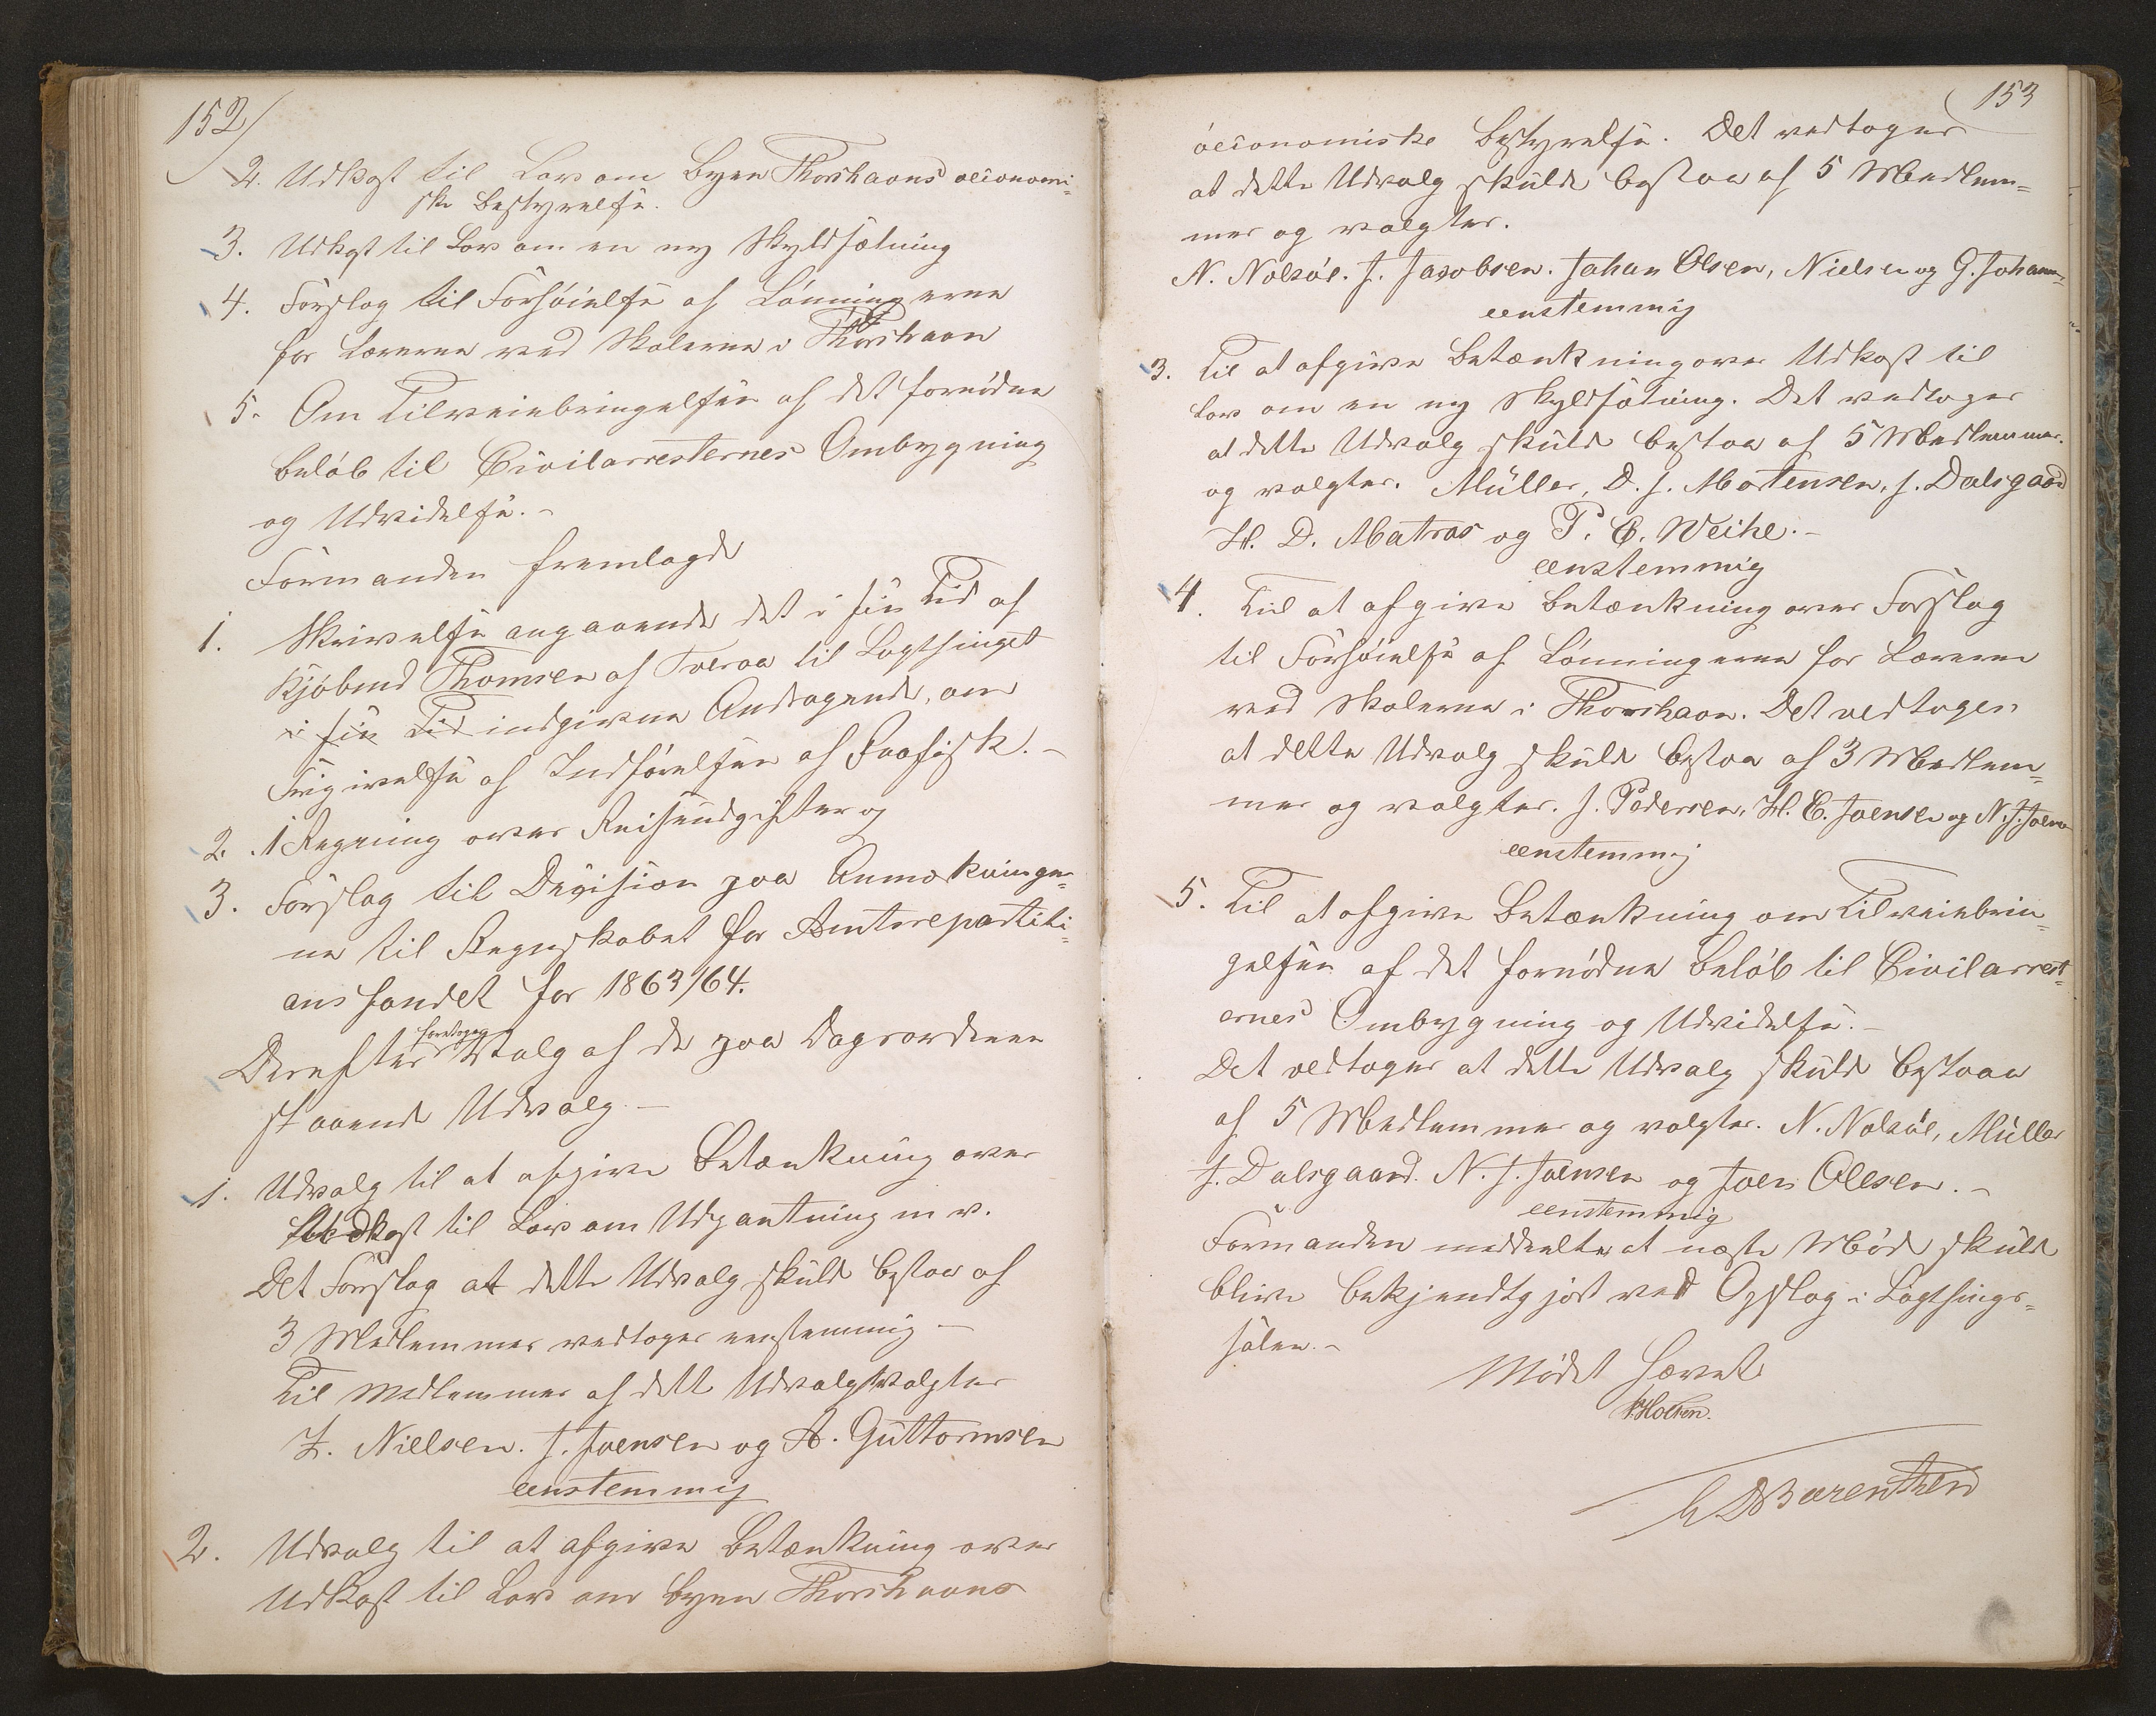 152/
2. Udkast til Lov om Byen Thorshavns oeconomi=
ske Bestyrelse.
3. Udkast til Lov om en ny Skyldsætning
4. Forslag til Forhøielse af Lønningerne
for Lærerne ved Skolerne i Thorshavn
5. Om Tilveiebringelsen af det fornødne
Beløb til Civilarresternes Ombygning
og Udvidelse.-
Formanden fremlagde
1. Skrivelse angaaende det i sin Tid af
Kjøbmd Thomsen af Tveraa til Lagthinget
i sin Tid indgivne Andragende, om
Frigivelse af Indførelsen af Raafisk.-
2. 1 Regning over Reiseudgifter og
3. Forslag til Decision paa Anmærkninger=
ne til Regnskabet for Amtsrepartiti=
onsfondet for 1863/64.
Derefter foretoges Valg af de paa Dagsordenen
staaende Udvalg.-
1. Udvalg til at afgive Betænkning over
Udkast til Lov om Udpantning m v.
Det Forslag at dette Udvalg skulde bestaa af
3 Medlemmer vedtoges eenstemmig -
Til Medlemmer af dette Udvalg valgtes
Z. Nielsen. J. Joensen og A. Guttormsen
eenstemmig
2. Udvalg til at afgive Betænkning over
Udkast til Lov om Byen Thorshavns
153
oeconomiske Bestyrelse. Det vedtoges
at dette Udvalg skulde bestaa af 5 Medlem=
mer og valgtes.
N. Nolsøe. J. Jacobsen. Johan Olsen, Nielsen og G. Johann=
eenstemmig
3. Til at afgive Betænkning over Udkast til
Lov om en ny Skyldsætning. Det vedtoges
at dette Udvalg skulde bestaa af 5 Medlemmer.
og valgtes. Müller, D. J. Mortensen, J. Dalsgaard
H. D. Matras og P. C. Weihe.-
eenstemmig
4. Til at afgive Betænkning over Forslag
til Forhøielse af Lønningerne for Lærerne
ved Skolerne i Thorshavn. Det vedtoges
at dette Udvalg skulde bestaa af 3 Medlem=
mer og valgtes. J. Pedersen, H. C. Joensen og N. J. Joens
eenstemmig
5. Til at afgive Betænkning om Tilveiebrin=
gelsen af det fornødne Beløb til Civilarrest=
ernes Ombygning og Udvidelse.-
Det vedtoges at dette Udvalg skulde bestaae
af 5 Medlemmer og valgtes. N. Nolsøe, Müller
J. Dalsgaard. N. J. Joensen og Joen Olesen.-
eenstemmig
Formanden meddeelte at næste Møde skulde
blive bekjendtgjort ved Opslag i Lagthings=
salen.-
Mødet hævet
Holten.
Barentsen